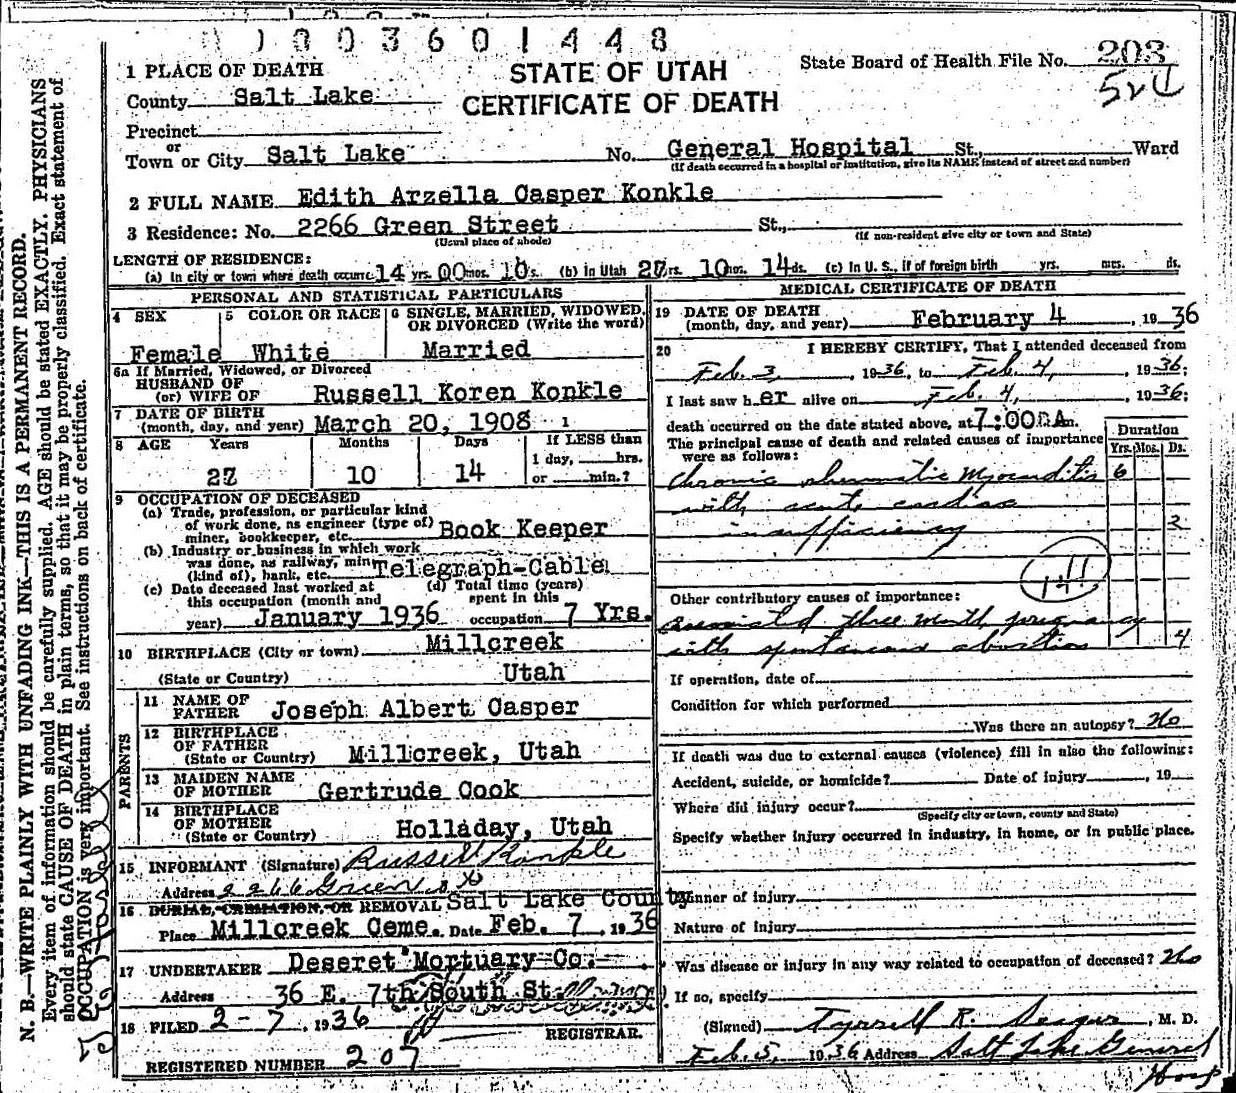 1003601448
STATE OF UTAH
CERTIFICATE OF DEATH
State Board of Health File No. 203
1 PLACE OF DEATH
County Salt Lake
Precinct
or
Town or City Salt Lake No. General Hospital St., Ward
(If death occurred in a hospital or institution, give its NAME instead of street and number)
2 FULL NAME Edith Arzella Casper Konkle
3 Residence: No. 2266 Green Street St.,
(Usual place of abode) (If non-resident give city or town and State)
LENGTH OF RESIDENCE:
(a) In city or town where death occurr. 14 yrs. 00 mos. 10 s. (b) in Utah 27 rs. 10 os. 14 ds. (c) In U. S., if of foreign birth yrs. mos. ds.
PERSONAL AND STATISTICAL PARTICULARS
4 SEX 5 COLOR OR RACE 6 SINGLE, MARRIED, WIDOWED, OR DIVORCED (Write the word)
Female White Married
6a If Married, Widowed, or Divorced
HUSBAND OF
(or) WIFE OF Russell Koren Konkle
7 DATE OF BIRTH
(month, day, and year) March 20, 1908
8 AGE Years Months Days If LESS than
1 day, hrs.
27 10 14 or min.?
9 OCCUPATION OF DECEASED
(a) Trade, profession, or particular kind
of work done, as engineer (type of)
miner, bookkeeper, etc. Book Keeper
(b) Industry or business in which work
was done, as railway, min
(kind of), bank, etc. Telegraph-Cable
(c) Date deceased last worked at (d) Total time (years)
this occupation (month and spent in this
year) January 1936 occupation 7 Yrs.
10 BIRTHPLACE (City or town) Millcreek
(State or Country) Utah
PARENTS
11 NAME OF
FATHER Joseph Albert Casper
12 BIRTHPLACE
OF FATHER
(State or Country) Millcreek, Utah
13 MAIDEN NAME
OF MOTHER Gertrude Cook
14 BIRTHPLACE
OF MOTHER
(State or Country) Holladay, Utah
15 INFORMANT (Signature) Russell Konkle
Address 2266 Green St
16 BURIAL, CREMATION, OR REMOVAL Salt Lake County
Place Millcreek Ceme. Date Feb. 7, 1936
17 UNDERTAKER Deseret Mortuary Co.
Address 36 E. 7th South St.
18 FILED 2-7, 1936
REGISTRAR.
REGISTERED NUMBER 207
MEDICAL CERTIFICATE OF DEATH
19 DATE OF DEATH
(month, day, and year) February 4, 1936
20 I HEREBY CERTIFY, That I attended deceased from
Feb. 3, 1936, to Feb. 4, 1936;
I last saw her alive on Feb. 4, 1936;
death occurred on the date stated above, at 7:00 A m.
The principal cause of death and related causes of importance
were as follows:
Duration
Yrs. Mos. Ds.
Chronic rheumatic Myocarditis 6
with acute cardiac
insufficiency 2
Other contributory causes of importance:
Associated three month pregnancy
with spontaneous abortion 4
If operation, date of
Condition for which performed
Was there an autopsy? No
If death was due to external causes (violence) fill in also the following:
Accident, suicide, or homicide? Date of injury , 19
Where did injury occur?
(Specify city or town, county and State)
Specify whether injury occurred in industry, in home, or in public place.
Manner of injury
Nature of injury
Was disease or injury in any way related to occupation of deceased? No
If so, specify
(Signed) Tyrrell R. Seager, M. D.
Feb. 5, 1936 Address Salt Lake General
Hosp
N. B.—WRITE PLAINLY WITH UNFADING INK—THIS IS A PERMANENT RECORD.
Every item of information should be carefully supplied. AGE should be stated EXACTLY. PHYSICIANS
should state CAUSE OF DEATH in plain terms, so that it may be properly classified. Exact statement of
OCCUPATION is very important. See instructions on back of certificate.